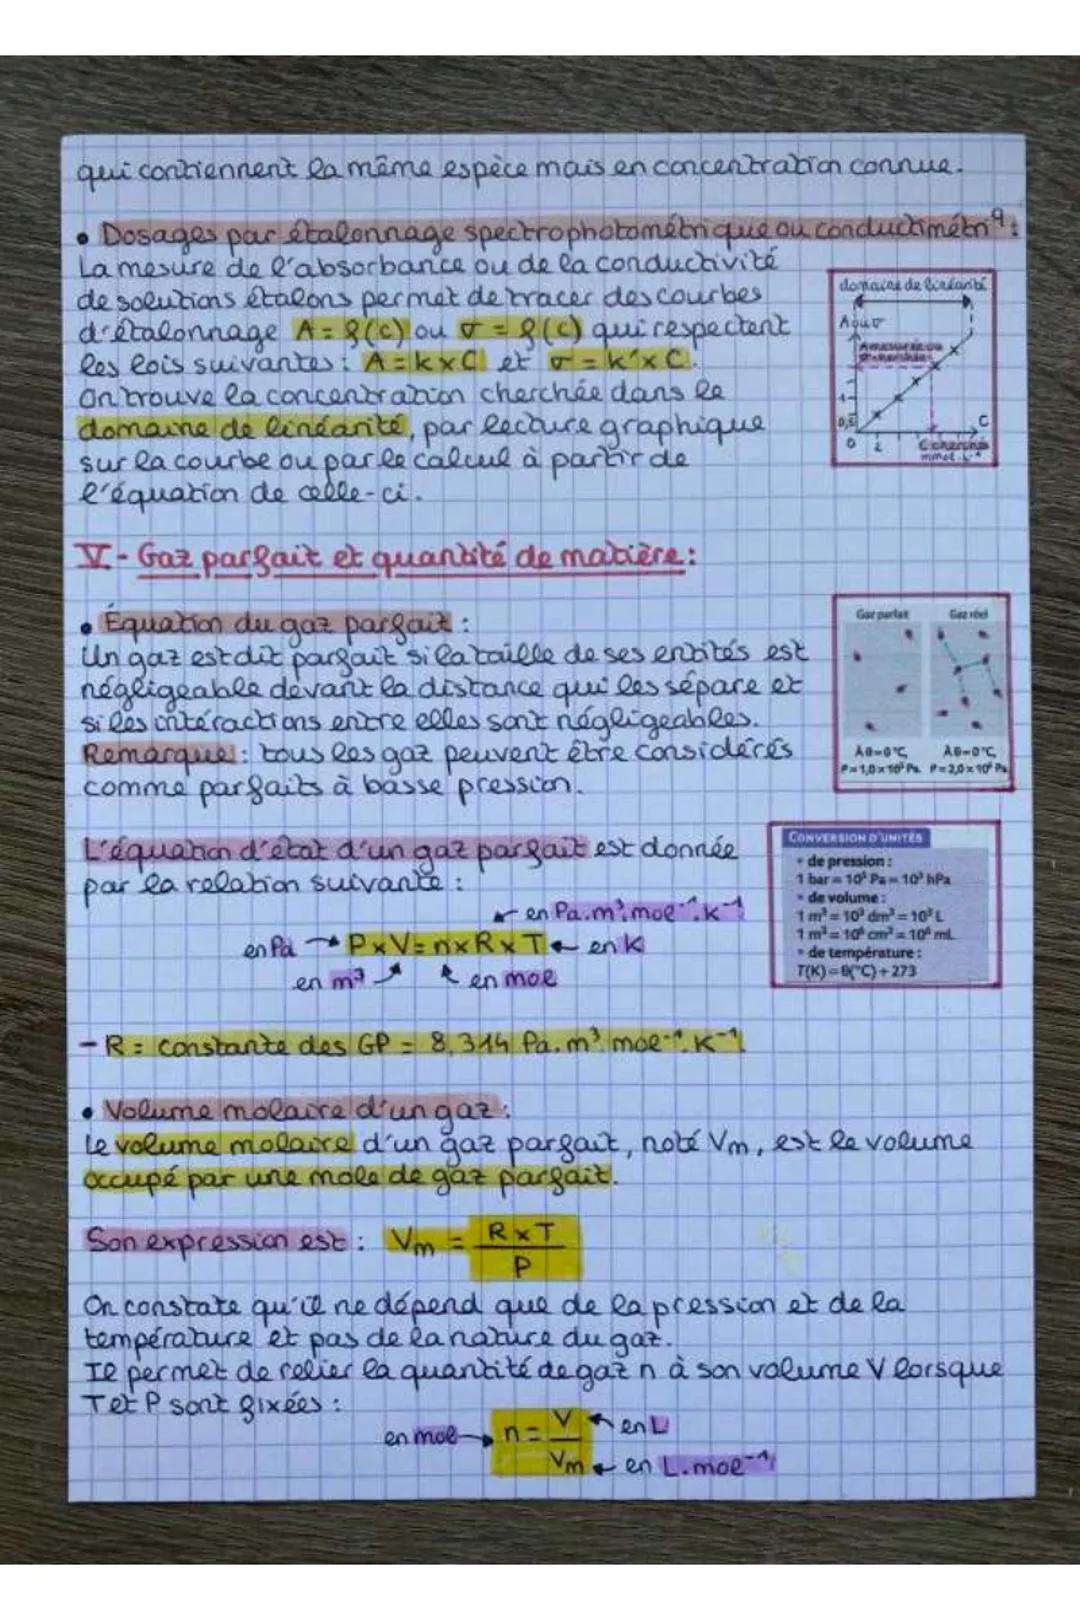 qui contiennent la même espèce mais en concentration connue.
• Dosages par étalonnage spectrophotométrique ou conductimétriq :
La mesure de l'absorbance ou de la conductivité
de solutions étalons permet de tracer des courbes
d'étalonnage A = f(c) ou σ = f(c) qui respectent
les lois suivantes : A = k x C et σ = k' x C.
On trouve la concentration cherchée dans le
domaine de linéarité, par lecture graphique
sur la courbe ou par le calcul à partir de
l'équation de celle-ci.
domaine de linéarité
A ou σ
1
0,5
0
2
C
C cherchée
mmol.L⁻¹
V - Gaz parfait et quantité de matière :
• Équation du gaz parfait :
Un gaz est dit parfait si la taille de ses entités est
négligeable devant la distance qui les sépare et
si les intéractions entre elles sont négligeables.
Remarque : tous les gaz peuvent être considérés
comme parfaits à basse pression.
Gaz parfait
Gaz réel
À θ = 0 °C,
P = 1,0 × 10⁵ Pa.
À θ = 0 °C,
L'équation d'état d'un gaz parfait est donnée
par la relation suivante :
en Pa.m³.mol⁻¹.K⁻¹
en Pa → P x V = n x R x T ← en K
en m³
en mol
CONVERSION D'UNITÉS
• de pression :
1 bar = 10⁵ Pa = 10³ hPa
• de volume :
1 m³ = 10³ dm³ = 10³ L
1 m³ = 10⁶ cm³ = 10⁶ mL
• de température :
T(K) = θ(°C) + 273
- R : constante des GP = 8,314 Pa.m³.mol⁻¹.K⁻¹
• Volume molaire d'un gaz :
Le volume molaire d'un gaz parfait, noté Vm, est le volume
occupé par une mole de gaz parfait.
Son expression est : Vm = R x T
P
On constate qu'il ne dépend que de la pression et de la
température et pas de la nature du gaz.
Il permet de relier la quantité de gaz n à son volume V lorsque
T et P sont fixées :
en mol → n = V ← en L
Vm ← en L.mol⁻¹